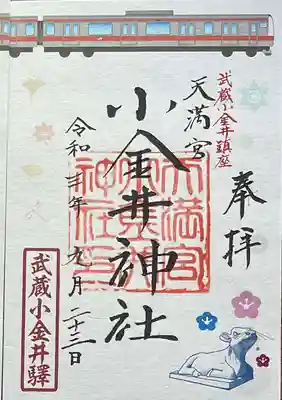 奉拝
武蔵小金井鎮座
天満宮
小金井神社
令和三年 九月 二十三日
武蔵小金井驛